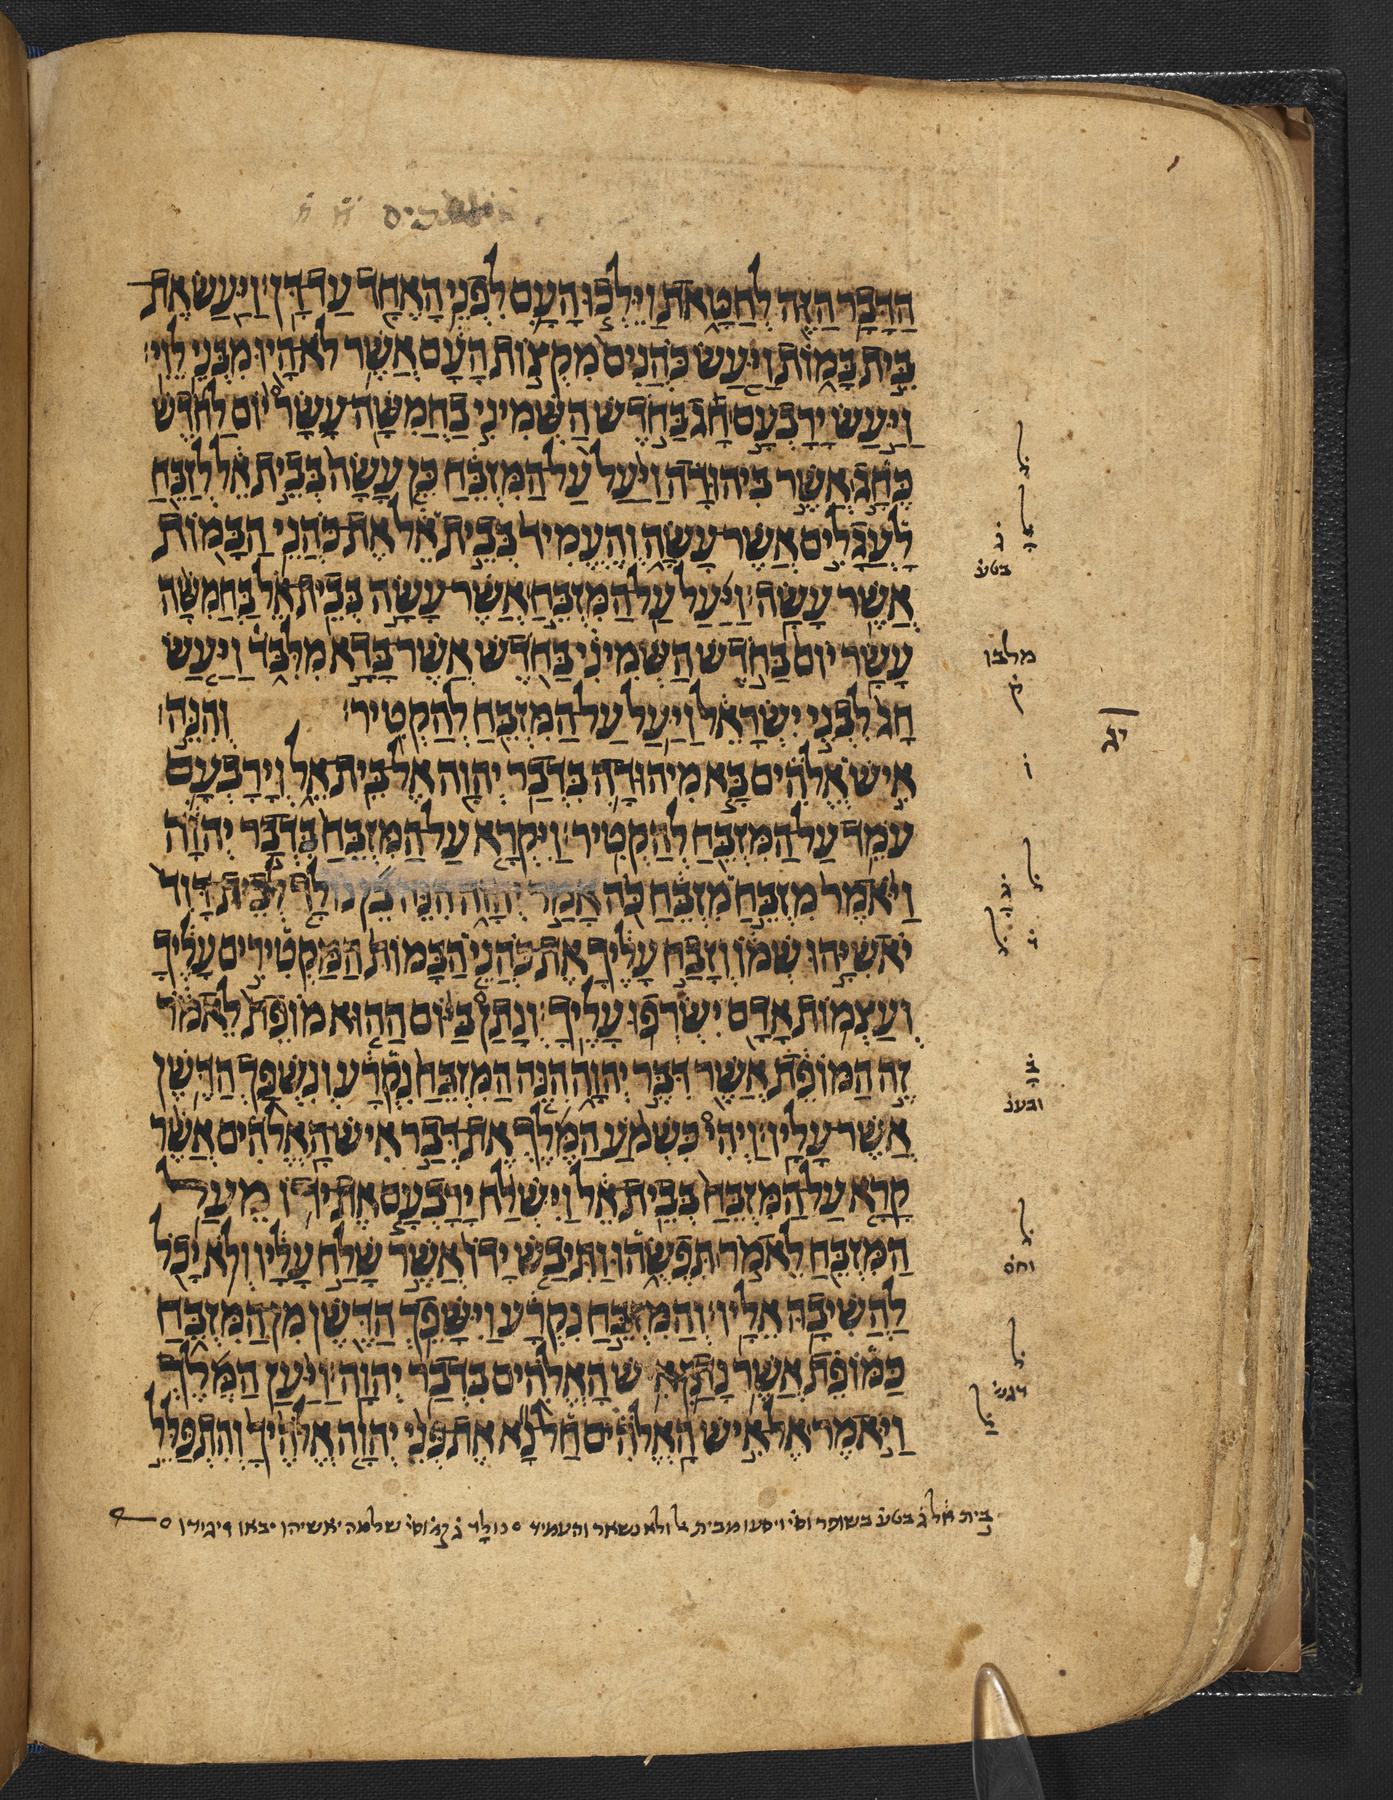 הַדָּבָר הַזֶּה לְחַטָּאת וַיֵּלְכוּ הָעָם לִפְנֵי הָאֶחָד עַד דָּן׃ וַיַּעַשׂ אֶת
בֵּית בָּמוֹת וַיַּעַשׂ כֹּהֲנִים מִקְצוֹת הָעָם אֲשֶׁר לֹא הָיוּ מִבְּנֵי לֵוִי׃
וַיַּעַשׂ יָרָבְעָם חָג בַּחֹדֶשׁ הַשְּׁמִינִי בַּחֲמִשָּׁה עָשָׂר יוֹם לַחֹדֶשׁ
כֶּחָג אֲשֶׁר בִּיהוּדָה וַיַּעַל עַל הַמִּזְבֵּחַ כֵּן עָשָׂה בְּבֵית אֵל לְזַבֵּחַ
לָעֲגָלִים אֲשֶׁר עָשָׂה וְהֶעֱמִיד בְּבֵית אֵל אֶת כֹּהֲנֵי הַבָּמוֹת
אֲשֶׁר עָשָׂה׃ וַיַּעַל עַל הַמִּזְבֵּחַ אֲשֶׁר עָשָׂה בְּבֵית אֵל בַּחֲמִשָּׁה
עָשָׂר יוֹם בַּחֹדֶשׁ הַשְּׁמִינִי בַּחֹדֶשׁ אֲשֶׁר בָּדָא מִלִּבַּד וַיַּעַשׂ
חָג לִבְנֵי יִשְׂרָאֵל וַיַּעַל עַל הַמִּזְבֵּחַ לְהַקְטִיר׃ וְהִנֵּה
אִישׁ אֱלֹהִים בָּא מִיהוּדָה בִּדְבַר יְהוָה אֶל בֵּית אֵל וְיָרָבְעָם
עֹמֵד עַל הַמִּזְבֵּחַ לְהַקְטִיר׃ וַיִּקְרָא עַל הַמִּזְבֵּחַ בִּדְבַר יְהוָה
וַיֹּאמֶר מִזְבֵּחַ מִזְבֵּחַ כֹּה אָמַר יְהוָה הִנֵּה בֵן נוֹלָד לְבֵית דָּוִד
יֹאשִׁיָּהוּ שְׁמוֹ וְזָבַח עָלֶיךָ אֶת כֹּהֲנֵי הַבָּמוֹת הַמַּקְטִירִים עָלֶיךָ
וְעַצְמוֹת אָדָם יִשְׂרְפוּ עָלֶיךָ׃ וְנָתַן בַּיּוֹם הַהוּא מוֹפֵת לֵאמֹר
זֶה הַמּוֹפֵת אֲשֶׁר דִּבֶּר יְהוָה הִנֵּה הַמִּזְבֵּחַ נִקְרָע וְנִשְׁפַּךְ הַדֶּשֶׁן
אֲשֶׁר עָלָיו׃ וַיְהִי כִשְׁמֹעַ הַמֶּלֶךְ אֶת דְּבַר אִישׁ הָאֱלֹהִים אֲשֶׁר
קָרָא עַל הַמִּזְבֵּחַ בְּבֵית אֵל וַיִּשְׁלַח יָרָבְעָם אֶת יָדוֹ מֵעַל
הַמִּזְבֵּחַ לֵאמֹר תִּפְשֻׂהוּ וַתִּיבַשׁ יָדוֹ אֲשֶׁר שָׁלַח עָלָיו וְלֹא יָכֹל
לַהֲשִׁיבָהּ אֵלָיו׃ וְהַמִּזְבֵּחַ נִקְרָע וַיִּשָּׁפֵךְ הַדֶּשֶׁן מִן הַמִּזְבֵּחַ
כַּמּוֹפֵת אֲשֶׁר נָתַן אִישׁ הָאֱלֹהִים בִּדְבַר יְהוָה׃ וַיַּעַן הַמֶּלֶךְ
וַיֹּאמֶר אֶל אִישׁ הָאֱלֹהִים חַל נָא אֶת פְּנֵי יְהוָה אֱלֹהֶיךָ וְהִתְפַּלֵּל
ל
ל
ג
בטע
מלבן
ק
יג
ו
ל
ג
ל
ב
ובענ
ל
וחס
ל
דגש
ל
בית אל ג בטע בשופר וסי ויסעו מבית אל ולא נשאר והעמיד ס נולד ג וסי שלמה יאשיהו יבאו ויגידו ס